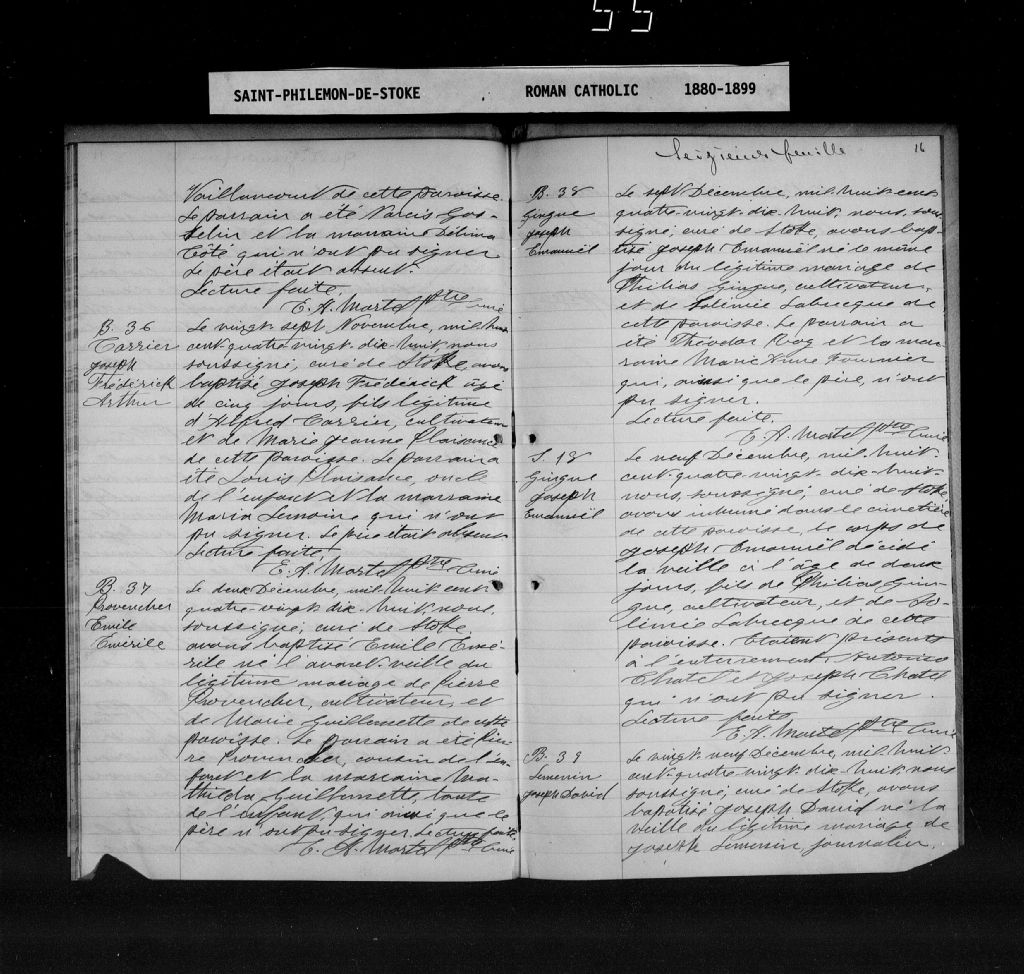 55
SAINT-PHILEMON-DE-STOKE ROMAN CATHOLIC 1880-1899
Vaillancourt de cette paroisse.
Le parrain a été Narcis Gos-
selin et la marraine Délima
Côté qui n'ont pu signer
Le père était absent.
Lecture faite.
E. A. Martel Ptre Curé
B. 36
Carrier
Joseph
Frédérick
Arthur
Le vingt sept Novembre, mil huit
cent quatre-vingt-dix-huit nous
soussigné, curé de Stoke, avons
baptisé Joseph Frédérick âgé
de cinq jours, fils légitime
d'Alfred Carrier, cultivateur
et de Marie Jeanne Plaisance
de cette paroisse. Le parrain a
été Louis Plaisance, oncle
de l'enfant et la marraine
Maria Lemoine qui n'ont
pu signer. Le père était absent
Lecture faite,
E. A. Martel Ptre Curé
B. 37
Provencher
Emile
Emérile
Le deux Décembre, mil huit cent
quatre-vingt dix-huit, nous,
soussigné, curé de Stoke,
avons baptisé Emile Emé-
rile né l'avant veille du
légitime mariage de Pierre
Provencher, cultivateur, et
de Marie Guillemette de cette
paroisse. Le parrain a été Pier-
re Provencher, cousin de l'en-
fant et la marraine Ma-
thilda Guillemette, tante
de l'enfant, qui ainsi que le
père n'ont pu signer. Lecture faite.
E. A. Martel Ptre Curé
Seizième feuille 16
B. 38
Gingue
Joseph
Emanuël
Le sept Décembre, mil huit cent
quatre-vingt-dix-huit, nous, sous-
signé, curé de Stoke, avons bap-
tisé Joseph Emanuël né le même
jour du légitime mariage de
Philias Gingue, cultivateur,
et de Solémie Labrecque de
cette paroisse. Le parrain a
été Théodor Roy et la mar-
raine Marie Anne Fournier
qui, ainsi que le père, n'ont
pu signer.
Lecture faite.
E. A. Martel Ptre Curé
S. 18
Gingue
Joseph
Emanuël
Le neuf Décembre, mil huit-
cent-quatre-vingt-dix-huit-
nous, soussigné, curé de Stoke,
avons inhumé dans le cimetière
de cette paroisse, le corps de
Joseph Emanuël décédé
la veille à l'âge de deux
jours, fils de Philias Gin-
gue, cultivateur, et de So-
lémie Labrecque de cette
paroisse. Etaient présents
à l'enterrement
Chatel et Joseph Chatel
qui n'ont pu signer.
Lecture faite,
E. A. Martel Ptre Curé
B. 39
Simenin
Joseph David
Le vingt neuf Décembre, mil huit-
cent-quatre-vingt-dix-huit, nous
soussigné, curé de Stoke, avons
baptisé Joseph David né la
veille du légitime mariage de
Joseph Simenin, journalier,